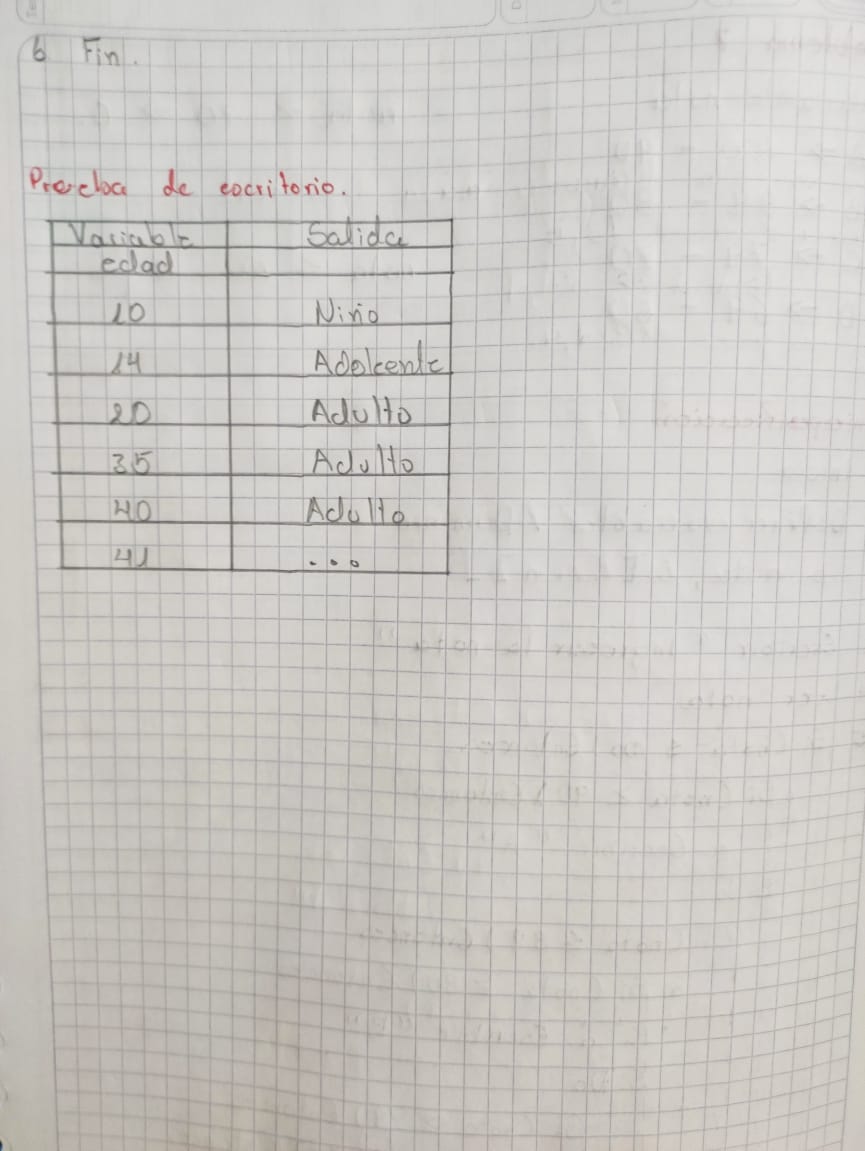 6 Fin.
Prueba de escritorio.
Variable Salida
edad
10 Niño
14 Adolcente
20 Adulto
35 Adulto
40 Adulto
41 ...